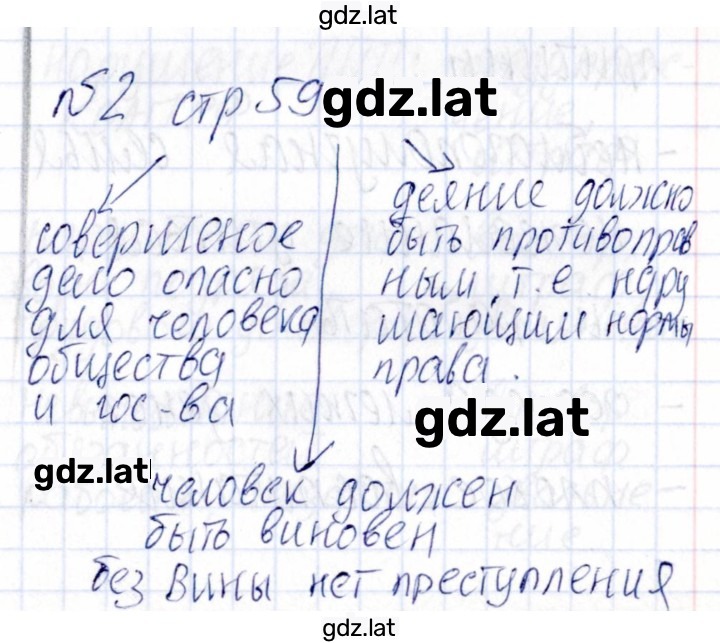 gdz.lat
№2 стр 59
gdz.lat
совершеное
дело опасно
для человека
общества
и гос-ва
деяние должно
быть противоправ
ным, т.е. нару
шающим нормы
права.
gdz.lat
gdz.lat
человек должен
быть виновен
без вины нет преступления
gdz.lat